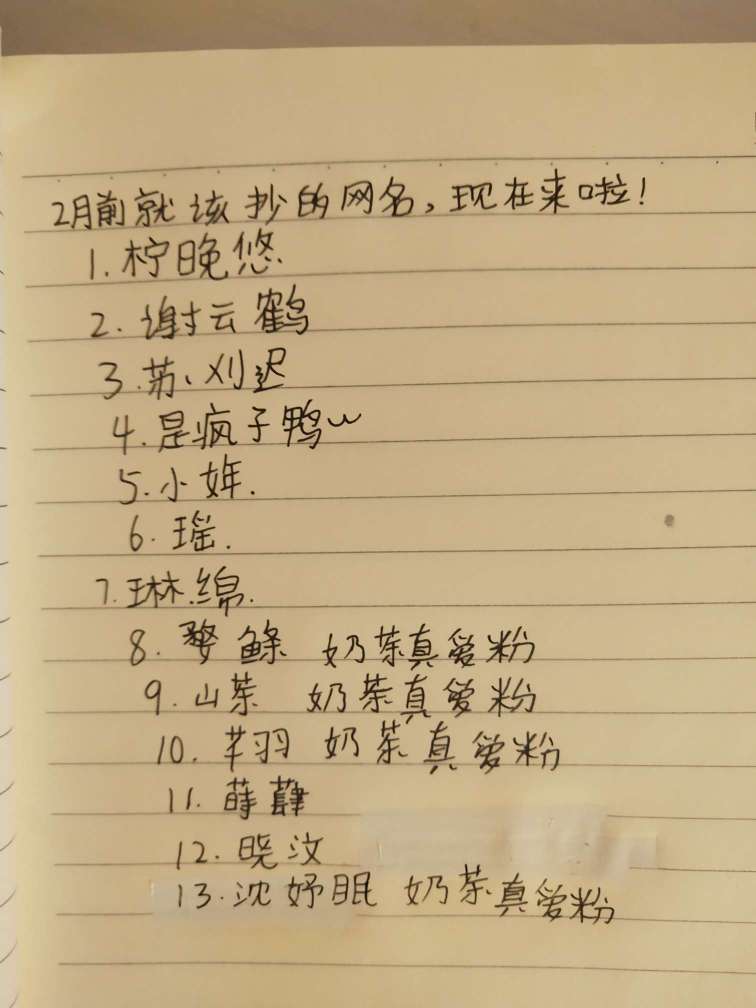 2月前就该抄的网名,现在来啦!
1.柠晚悠.
2.谢云鹤
3.苏、刈迟
4.是疯子鸭~
5.小妦.
6.瑶.
7.琳.绵.
8. 奶茶真爱粉
9.山茶 奶茶真爱粉
10.芊羽 奶茶真爱粉
11.薛
12.晓汶
13.沈妤眠 奶茶真爱粉